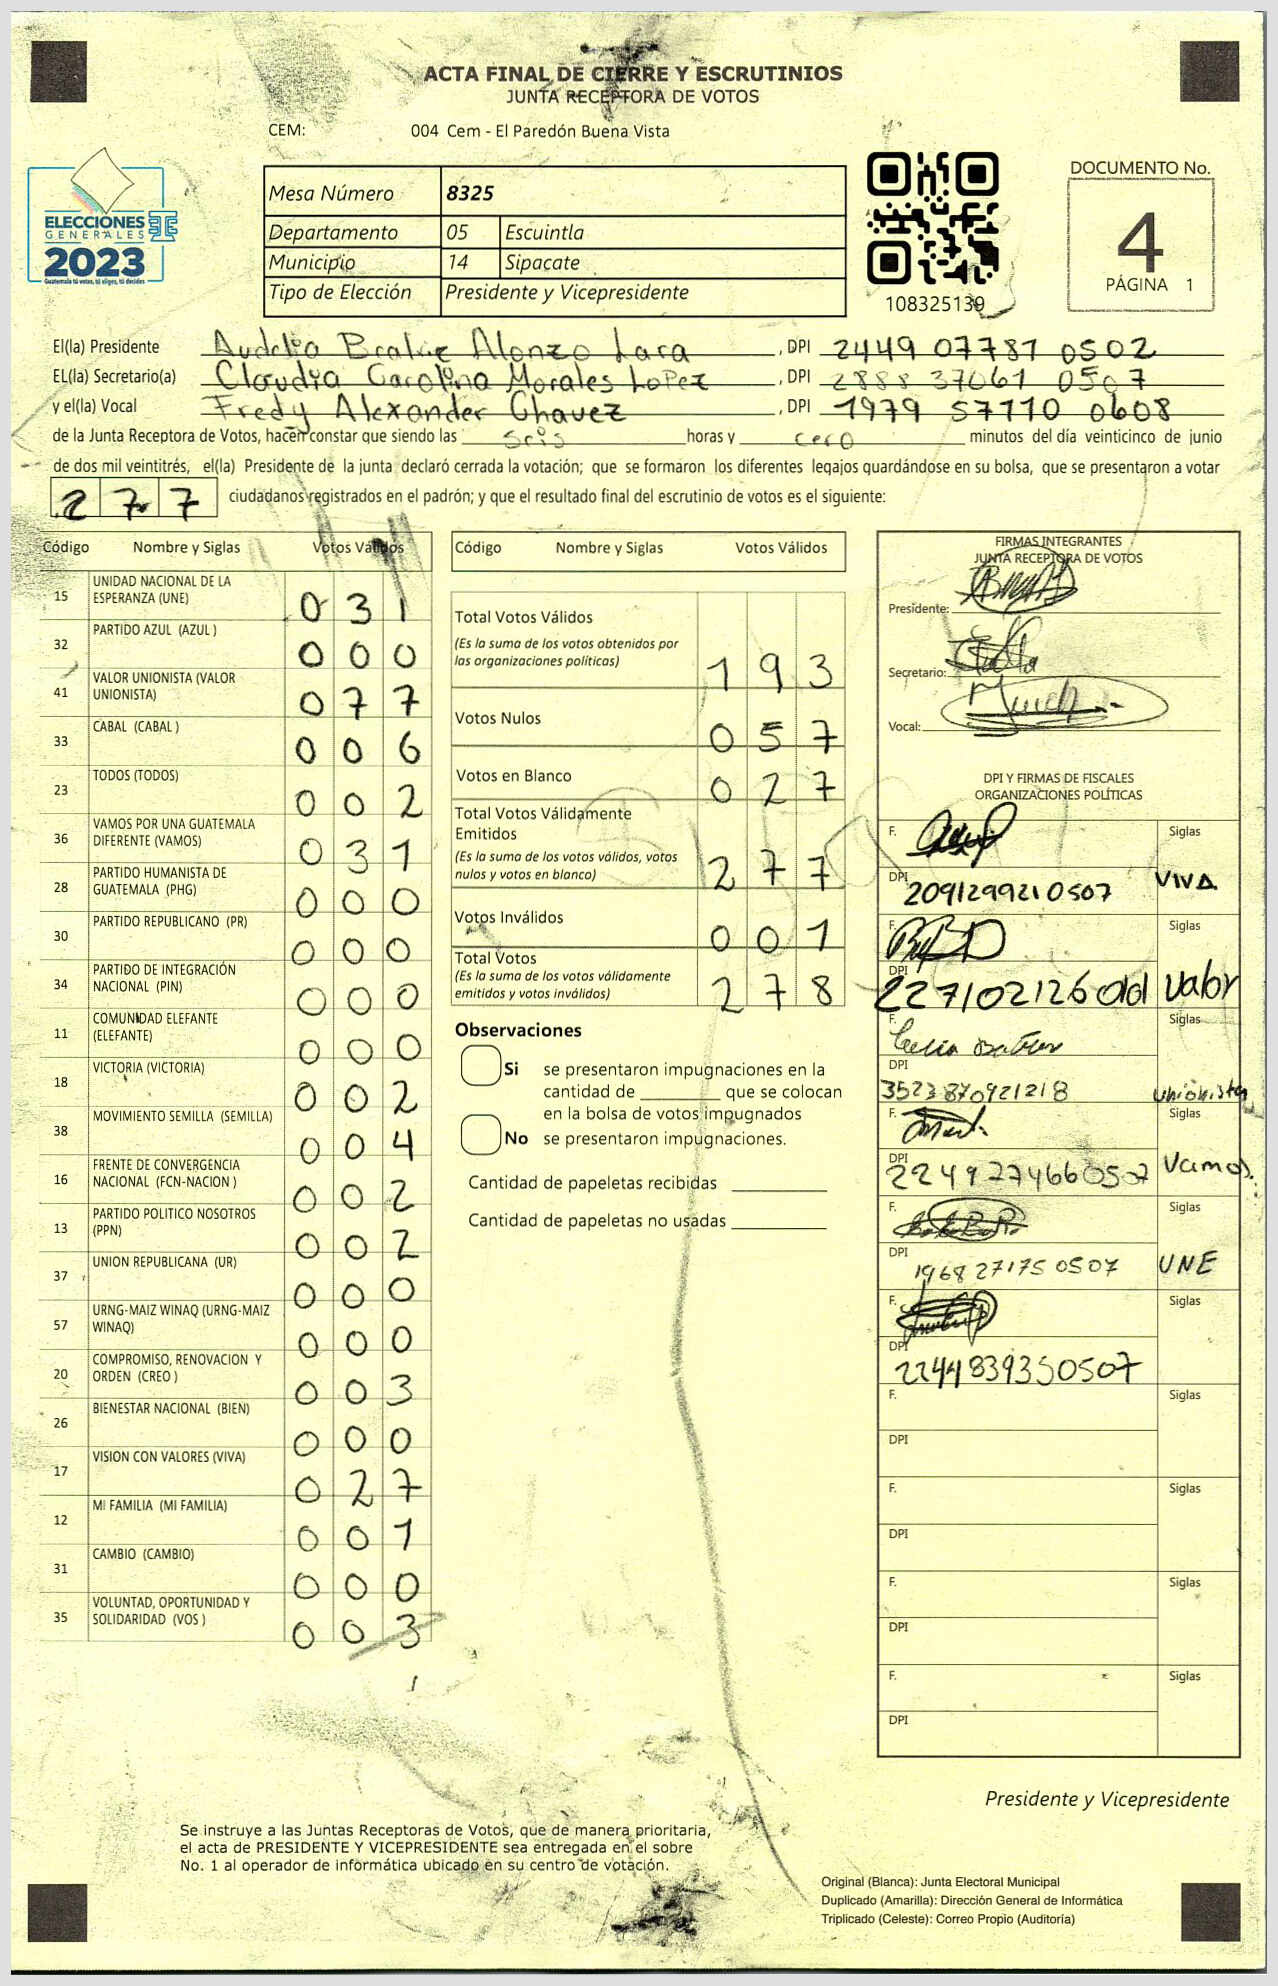 ACTA FINAL DE CIERRE Y ESCRUTINIOS
JUNTA RECEPTORA DE VOTOS
CEM: 004 Cem - El Paredón Buena Vista
ELECCIONES
GENERALES
2023
Guatemala tú votas, tú eliges, tú decides
Mesa Número 8325
Departamento 05 Escuintla
Municipio 14 Sipacate
Tipo de Elección Presidente y Vicepresidente
108325139
DOCUMENTO No.
4
PÁGINA 1
El(la) Presidente Alonzo Lara , DPI 2449 07787 0502
EL(la) Secretario(a) Claudia Carolina Morales LoPez , DPI 2888 37061 0507
y el(la) Vocal Fredy Alexander Chavez , DPI 1979 57110 0608
de la Junta Receptora de Votos, hacen constar que siendo las seis horas y cero minutos del día veinticinco de junio
de dos mil veintitrés, el(la) Presidente de la junta declaró cerrada la votación; que se formaron los diferentes legajos guardándose en su bolsa, que se presentaron a votar
277 ciudadanos registrados en el padrón; y que el resultado final del escrutinio de votos es el siguiente:
Código Nombre y Siglas Votos Válidos
15 UNIDAD NACIONAL DE LA ESPERANZA (UNE) 031
32 PARTIDO AZUL (AZUL ) 000
41 VALOR UNIONISTA (VALOR UNIONISTA) 077
33 CABAL (CABAL ) 006
23 TODOS (TODOS) 002
36 VAMOS POR UNA GUATEMALA DIFERENTE (VAMOS) 031
28 PARTIDO HUMANISTA DE GUATEMALA (PHG) 000
30 PARTIDO REPUBLICANO (PR) 000
34 PARTIDO DE INTEGRACIÓN NACIONAL (PIN) 000
11 COMUNIDAD ELEFANTE (ELEFANTE) 000
18 VICTORIA (VICTORIA) 002
38 MOVIMIENTO SEMILLA (SEMILLA) 004
16 FRENTE DE CONVERGENCIA NACIONAL (FCN-NACION ) 002
13 PARTIDO POLITICO NOSOTROS (PPN) 002
37 UNION REPUBLICANA (UR) 000
57 URNG-MAIZ WINAQ (URNG-MAIZ WINAQ) 000
20 COMPROMISO, RENOVACION Y ORDEN (CREO ) 003
26 BIENESTAR NACIONAL (BIEN) 000
17 VISION CON VALORES (VIVA) 027
12 MI FAMILIA (MI FAMILIA) 001
31 CAMBIO (CAMBIO) 000
35 VOLUNTAD, OPORTUNIDAD Y SOLIDARIDAD (VOS ) 003
Código Nombre y Siglas Votos Válidos
Total Votos Válidos
(Es la suma de los votos obtenidos por
las organizaciones políticas) 193
Votos Nulos 057
Votos en Blanco 027
Total Votos Válidamente
Emitidos
(Es la suma de los votos válidos, votos
nulos y votos en blanco) 277
Votos Inválidos 001
Total Votos
(Es la suma de los votos válidamente
emitidos y votos inválidos) 278
Observaciones
Si se presentaron impugnaciones en la
cantidad de ________ que se colocan
en la bolsa de votos impugnados
No se presentaron impugnaciones.
Cantidad de papeletas recibidas
Cantidad de papeletas no usadas
FIRMAS INTEGRANTES
JUNTA RECEPTORA DE VOTOS
Presidente:
Secretario:
Vocal:
DPI Y FIRMAS DE FISCALES
ORGANIZACIONES POLÍTICAS
F. Siglas
DPI 2091299210507 VIVA
F. Siglas
DPI valor
F. Siglas
DPI 3523870921218 unionista
F. Siglas
DPI 2249274660507 Vamos
F. Siglas
DPI 1968271750507 UNE
F. Siglas
DPI 2244839350507
F. Siglas
DPI
F. Siglas
DPI
F. Siglas
DPI
F. Siglas
DPI
Presidente y Vicepresidente
Se instruye a las Juntas Receptoras de Votos, que de manera prioritaria,
el acta de PRESIDENTE Y VICEPRESIDENTE sea entregada en el sobre
No. 1 al operador de informática ubicado en su centro de votación.
Original (Blanca): Junta Electoral Municipal
Duplicado (Amarilla): Dirección General de Informática
Triplicado (Celeste): Correo Propio (Auditoría)